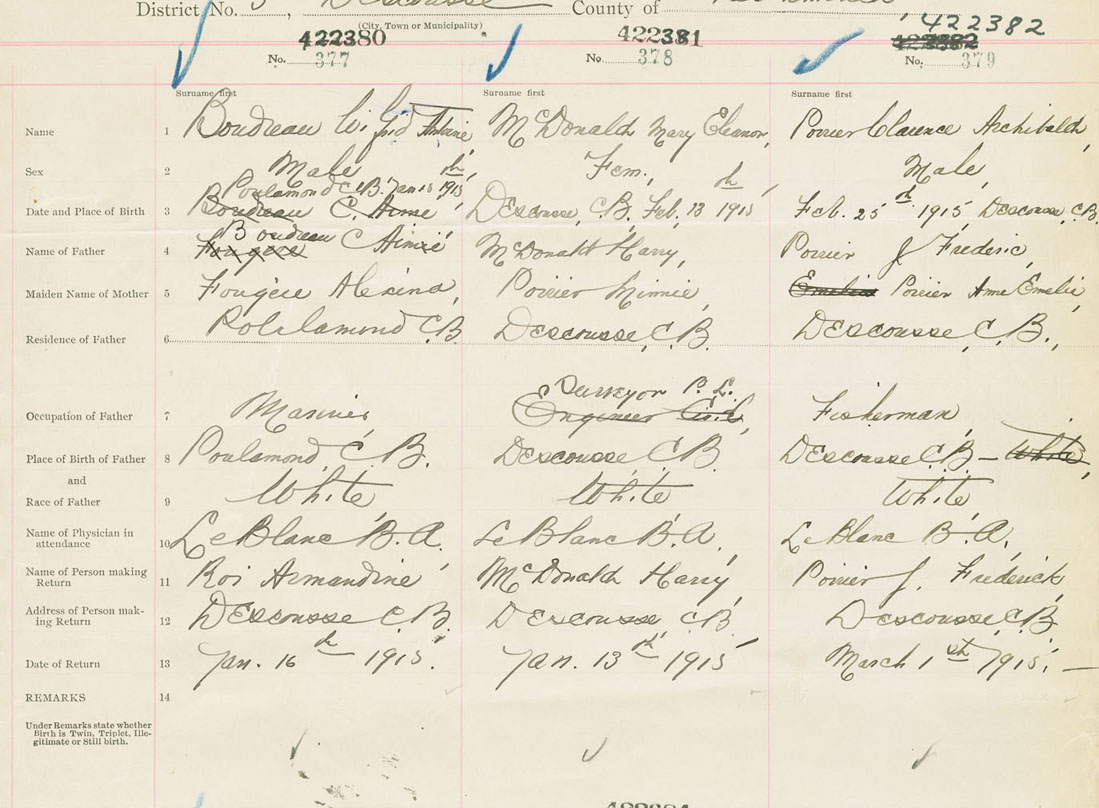 District No. 5, Descousse County of
(City, Town or Municipality)
422380 422381 422382
No. 377 No. 378 No. 379
Surname first Surname first Surname first
Name 1 Boudreau Wilfrid Antoine, McDonald Mary Eleanor, Poirier Clarence Archibald,
Sex 2 Male Fem., Male,
Poulamond C.B. Jan 15th 1915,
Date and Place of Birth 3 Boudreau C. Aimé Descousse, C.B. Feb. 13th 1915, Feb. 25th 1915, Descousse, C.B.
Name of Father 4 Boudreau C Aimié McDonald Harry, Poirier J Frederic,
Fougere
Maiden Name of Mother 5 Fougere Alexina, Poirier Minnie, Emelie Poirier Ame Emelie,
Residence of Father 6 Polelamond C.B. Descousse, C.B. Descousse, C.B.,
Surveyor P. L.
Occupation of Father 7 Mariner, Engineer Civil, Fisherman,
Place of Birth of Father 8 Poulamond, C.B. Descousse C.B. Descousse C.B — White,
and
Race of Father 9 White White White
Name of Physician in
attendance 10 LeBlanc B.A. LeBlanc B.A. LeBlanc B.A.
Name of Person making
Return 11 Roi Armandine McDonald Harry, Poirier J. Frederick
Address of Person mak-
ing Return 12 Descousse C.B. Descousse C.B. Descousse C.B.
Date of Return 13 Jan. 16th 1915. Jan. 13th 1915 March 1st, 1915. —
REMARKS 14
Under Remarks state whether
Birth is Twin, Triplet, Ille-
gitimate or Still birth.